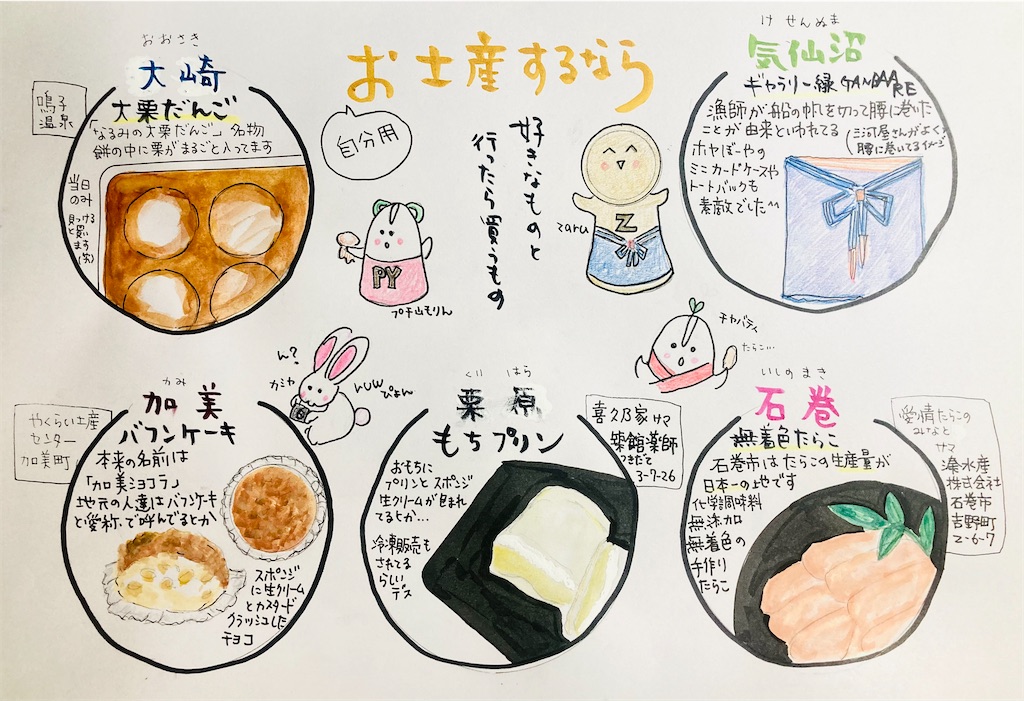 お土産するなら
自分用
好きなものと
行ったら買うもの
おおさき
大崎
鳴子
温泉
大栗だんご
「なるみの大栗だんご」名物
餅の中に栗がまるごと入ってます
当日
のみ
見つける
と
買い
ます
(笑)
PY
プチ山もりん
Z
zaru
けせんぬま
気仙沼
ギャラリー緑GANBAARE
漁師が船の帆を切って腰に巻いた
ことが由来といわれてる
(三河屋さんがよく
腰に巻いてるイメージ
ホヤぼーやの
ミニカードケースや
トートバックも
素敵でした^^
ん?
カミヤ
ruw
ぴょん
チャバティ
たらこ…
かみ
加美
やくらい土産
センター
加美町
バフンケーキ
本来の名前は
「加美ショコラ」
地元の人達はバフンケーキ
と愛称で呼んでるとか
スポンジ
に生クリーム
とカスタード
クラッシュした
チョコ
くりはら
栗原
もちプリン
喜久乃家サマ
築館薬師
つきだて
3-7-26
おもちに
プリンとスポンジ
生クリームが包まれ
てるとか…
冷凍販売も
されてる
らしい
デス
いしのまき
石巻
無着色たらこ
愛情たらこの
みなと
サマ
湊水産
株式会社
石巻市
吉野町
2-6-7
石巻市はたらこの生産量が
日本一の地です
化学調味料
無添加
無着色の
手作り
たらこ